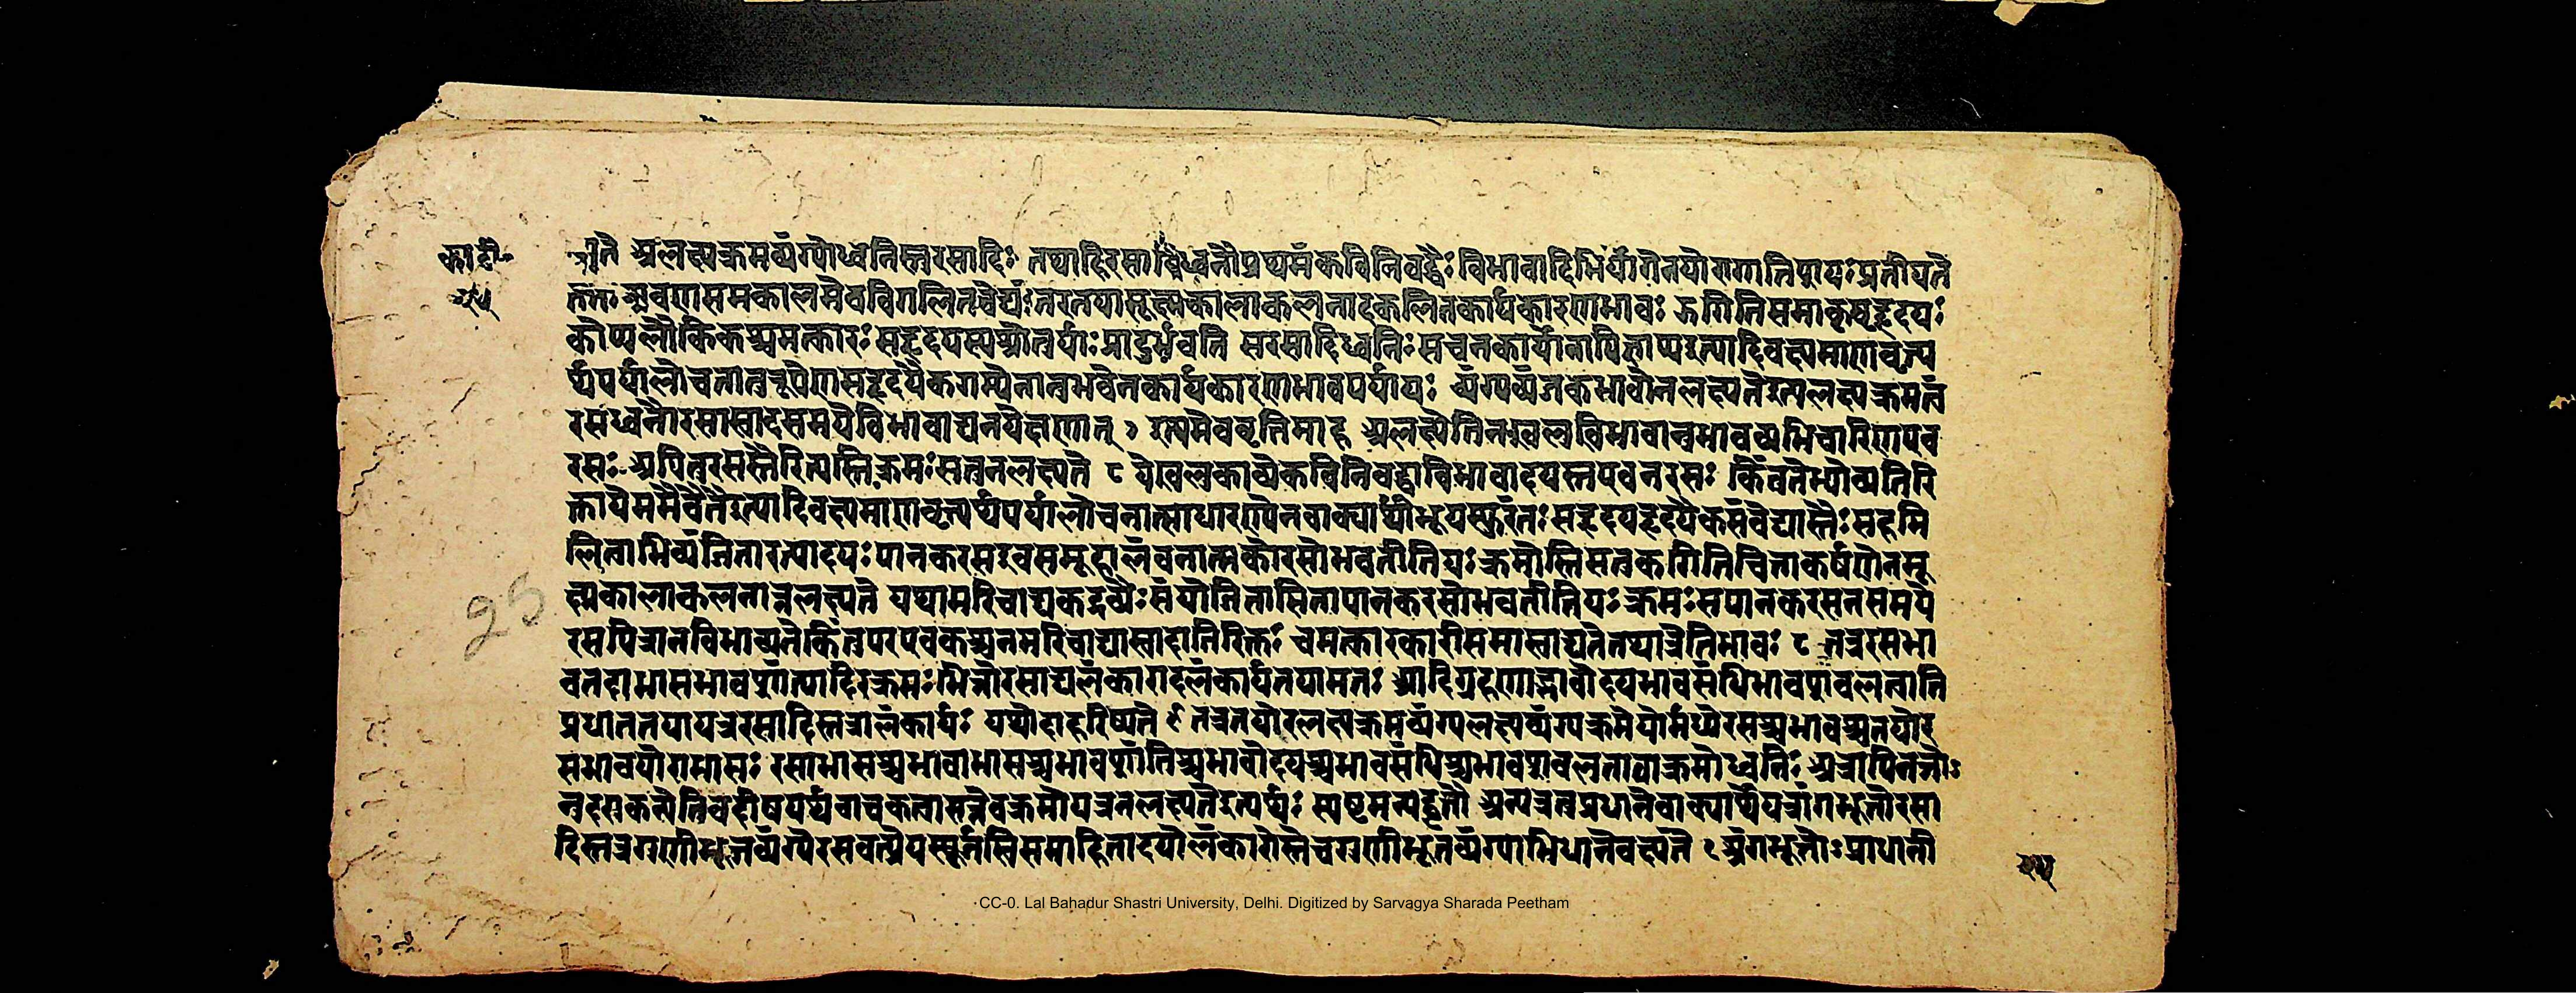 का॰दी॰
२५
ज्ञाते अलक्ष्यक्रमव्यंग्योध्वनिस्तुरसादिः तथाहिरसादिध्वनौप्रथमंकविनिबद्धैः विभावादिभिर्योगेनयो प्रतीयते
समकालमेवविगलितवेद्यांतरतयासूक्ष्मकालाकलनादकलितकार्यकारणभावः झगितिसमाकृष्टहृदयः
कोप्यलौकिकश्चमत्कारः सहृदयस्यश्रोतुर्याः प्रादुर्भवति सरसादिध्वनिः सचनकार्योनापिज्ञाप्यइत्यादिवक्ष्यमाणवृत्त्य
र्थपर्यालोचनानुरूपेणसहृदयैकगम्येनानुभवेनकार्यकारणभावपर्यायः व्यंग्यव्यंजकभावोनलक्ष्यतेइत्यलक्ष्यक्रमत्वं
रसध्वनौरसास्वादसमयेविभावाद्यनपेक्षणात् इममेववृत्तिमाह अलक्ष्येतिनखलुविभावानुभावव्यभिचारिणएव
रसः अपितुरसस्तैरित्यस्तिक्रमः सतुनलक्ष्यते येखलुकाव्येकविनिबद्धाविभावादयस्तएवनरसः किंतुतेभ्योव्यतिरि
क्तायेममैवैतेइत्यादिवक्ष्यमाणवृत्त्यर्थपर्यालोचनात्साधारण्येनवाक्यार्थीभूयस्फुरंतः सहृदयहृदयैकसंवेद्यास्तैः सहमि
लित्वाभिव्यंजितारत्यादयः पानकरसइवसमूहालंबनात्मकोरसोभवतीतियः क्रमोस्तिसतुझगितिचित्ताकर्षणेनसू
क्ष्मकालाकलनान्नलक्ष्यते यथामरिचाद्यकद्रव्यैः संयोजितासितापानकरसोभवतीतियः क्रमः सपानकरसनसमये
चमत्कारकारीसमास्वाद्यतेतथात्रेतिभावः तत्ररसभा
वतदाभासभावशांत्यादिरक्रमः भिन्नोरसाद्यलंकारादलंकार्यतयास्थितः आदिग्रहणाद्भावोदयभावसंधिभावशबलत्वानि
प्रधानतयायत्ररसादिस्तत्रालंकार्यः यथोदाहरिष्यते तत्रतयोरलक्ष्यक्रमव्यंग्यलक्ष्यव्यंग्यक्रमयोर्मध्येरसश्चभावश्चतयोर
सभावयोराभासः रसाभासश्चभावाभासश्चभावशांतिश्चभावोदयश्चभावसंधिश्चभावशबलतावाक्रमोध्वनिः
इत्यर्थः स्पष्टमन्यद्वृत्तौ अन्यत्रतुप्रधानेवाक्यार्थेयत्रांगभूतोरसा
दिस्तत्रगुणीभूतव्यंग्येरसवत्प्रेयस्यूर्जस्विसमाहितादयोलंकारास्तेचगुणीभूतव्यंग्याभिधानेवक्ष्यते अंगभूतोऽप्राधानी
२५
25
CC-0. Lal Bahadur Shastri University, Delhi. Digitized by Sarvagya Sharada Peetham